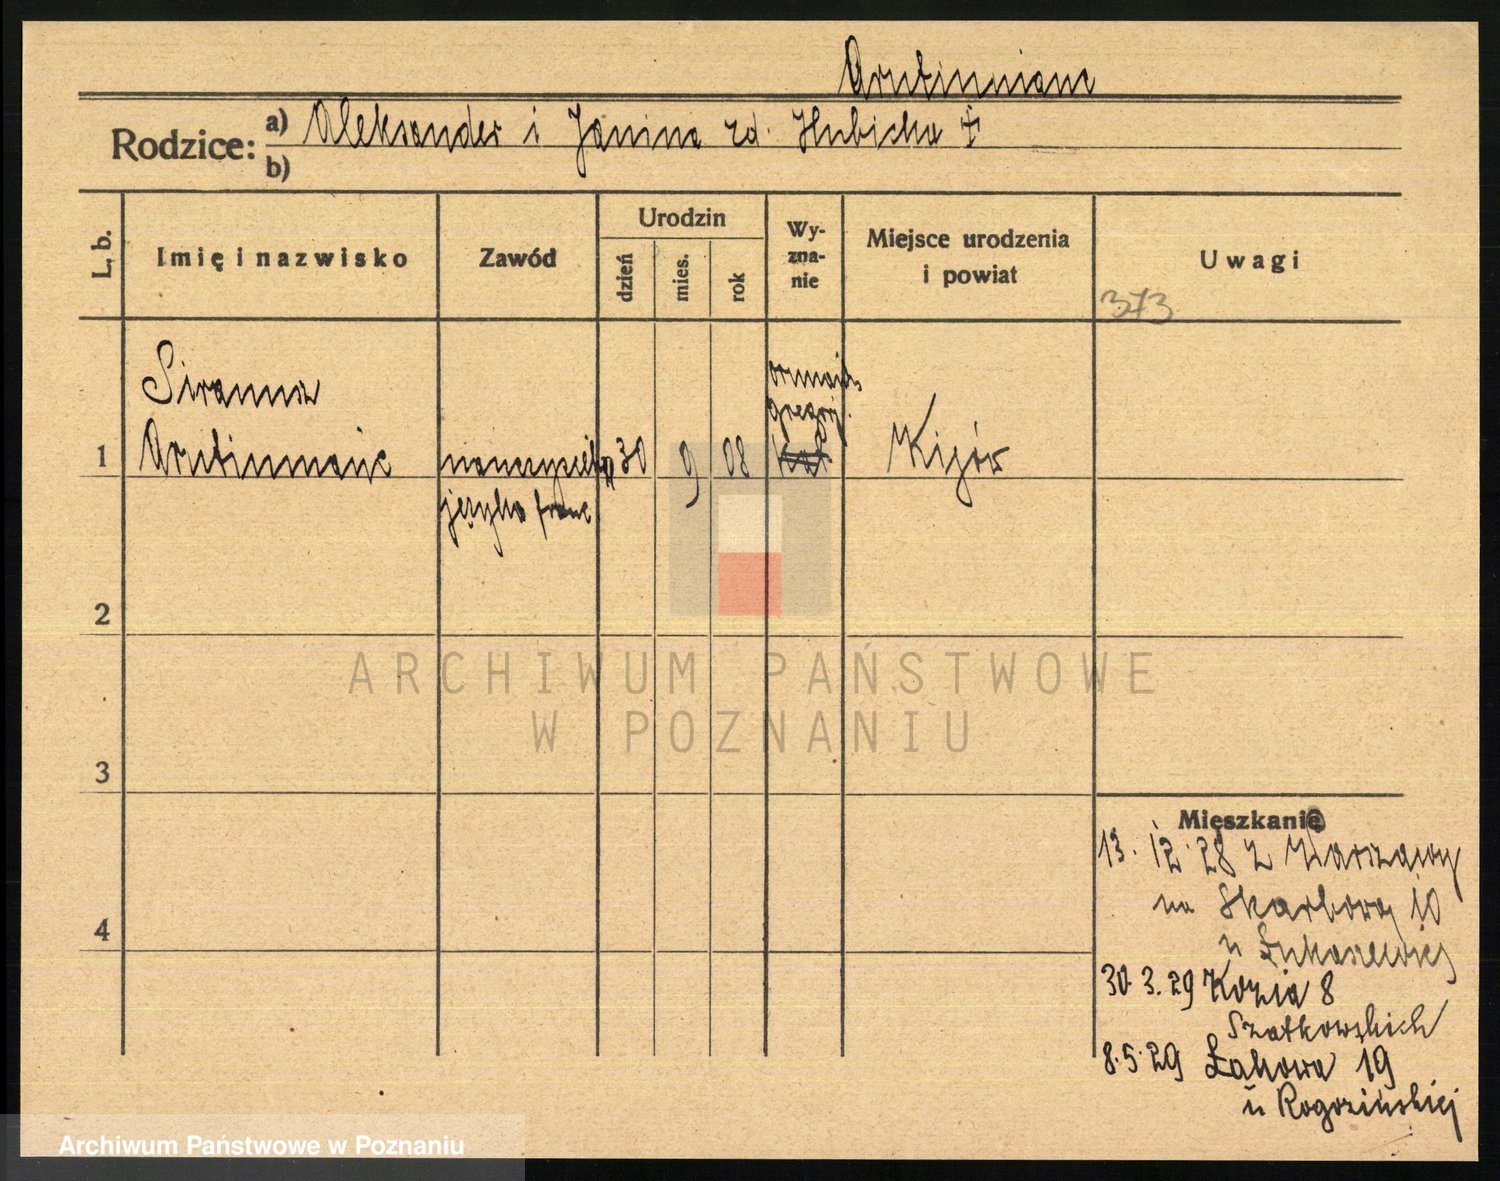 Arutiunianc
Rodzice: a) Aleksander i Janina zd. Hubicka ‡
b)
L. b.
Imię i nazwisko
Zawód
Urodzin
dzień
mies.
rok
Wy-
zna-
nie
Miejsce urodzenia
i powiat
Uwagi
373
Siranna
ormiań.
gregorj.
1 Arutiunianc nauczycielka 30 9 08 kat. Kijów
języka franc
2
ARCHIWUM PAŃSTWOWE
W POZNANIU
3
Mieszkanie
13. 12. 28 z Warszawy
na Skarbową 10
4
u Łukasiewicz
30. 3. 29 Kozia 8
Szatkowskich
8. 5. 29 Łąkowa 19
u Rogozińskiej
Archiwum Państwowe w Poznaniu